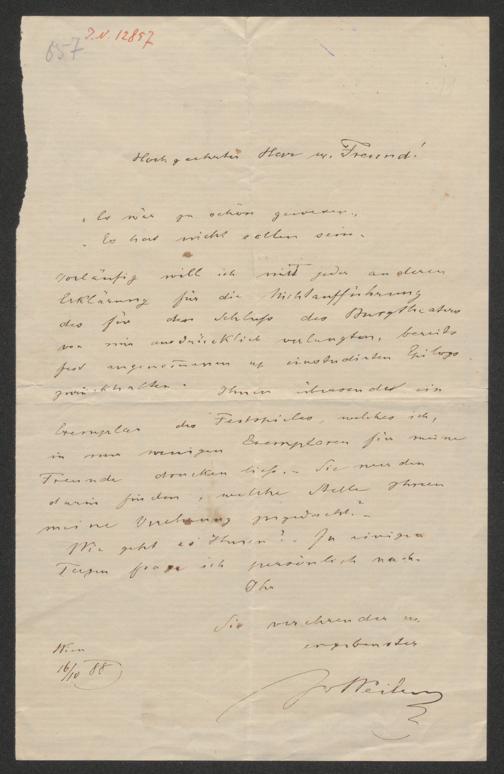 657
I.N. 12857
Hochgeehrter Herr u. Freund!
"Es wär zu schön gewesen,
Es hat nicht sollen sein.
Vorläufig will ich mit jeder anderen
Erklärung für die Nichtaufführung
des für den Schluß des Burgtheaters
von mir ausdrücklich verlangten, bereits
fest angenommenen u. einstudirten Epilogs
zurückhalten. Ihnen übersendet ein
Exemplar des Festspieles, welches ich,
in nur wenigen Exemplaren für meine
Freunde drucken ließ. Sie werden
darin finden, welche Stelle Ihnen
meine Verehrung zugedacht.
Wie geht es Ihnen? In einigen
Tagen frage ich persönlich nach.
Ihr
Sie verehrender u.
ergebenster
Wien
16/10 88
JvWeilen